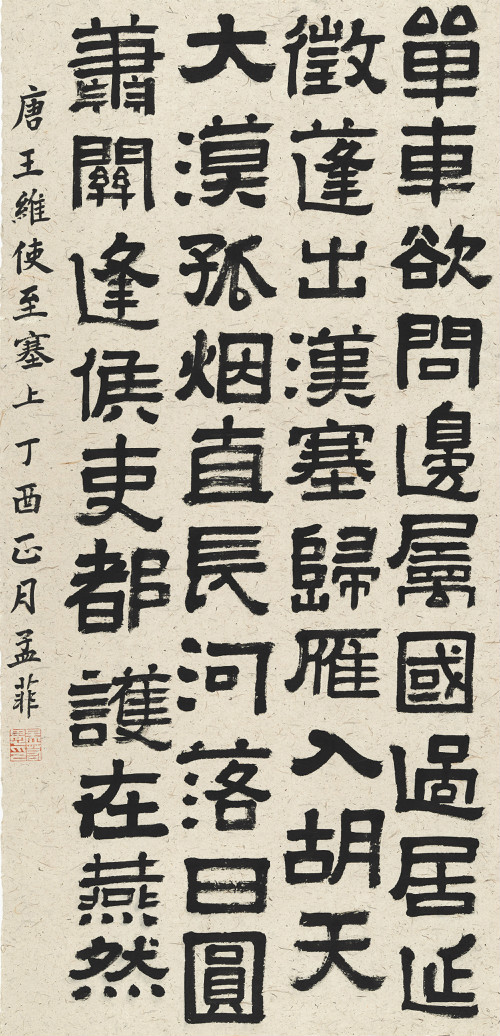 單車欲問邊屬國過居延
徵蓬出漢塞歸雁入胡天
大漠孤烟直長河落日圓
蕭關逢候吏都護在燕然
唐王維使至塞上丁酉正月孟菲